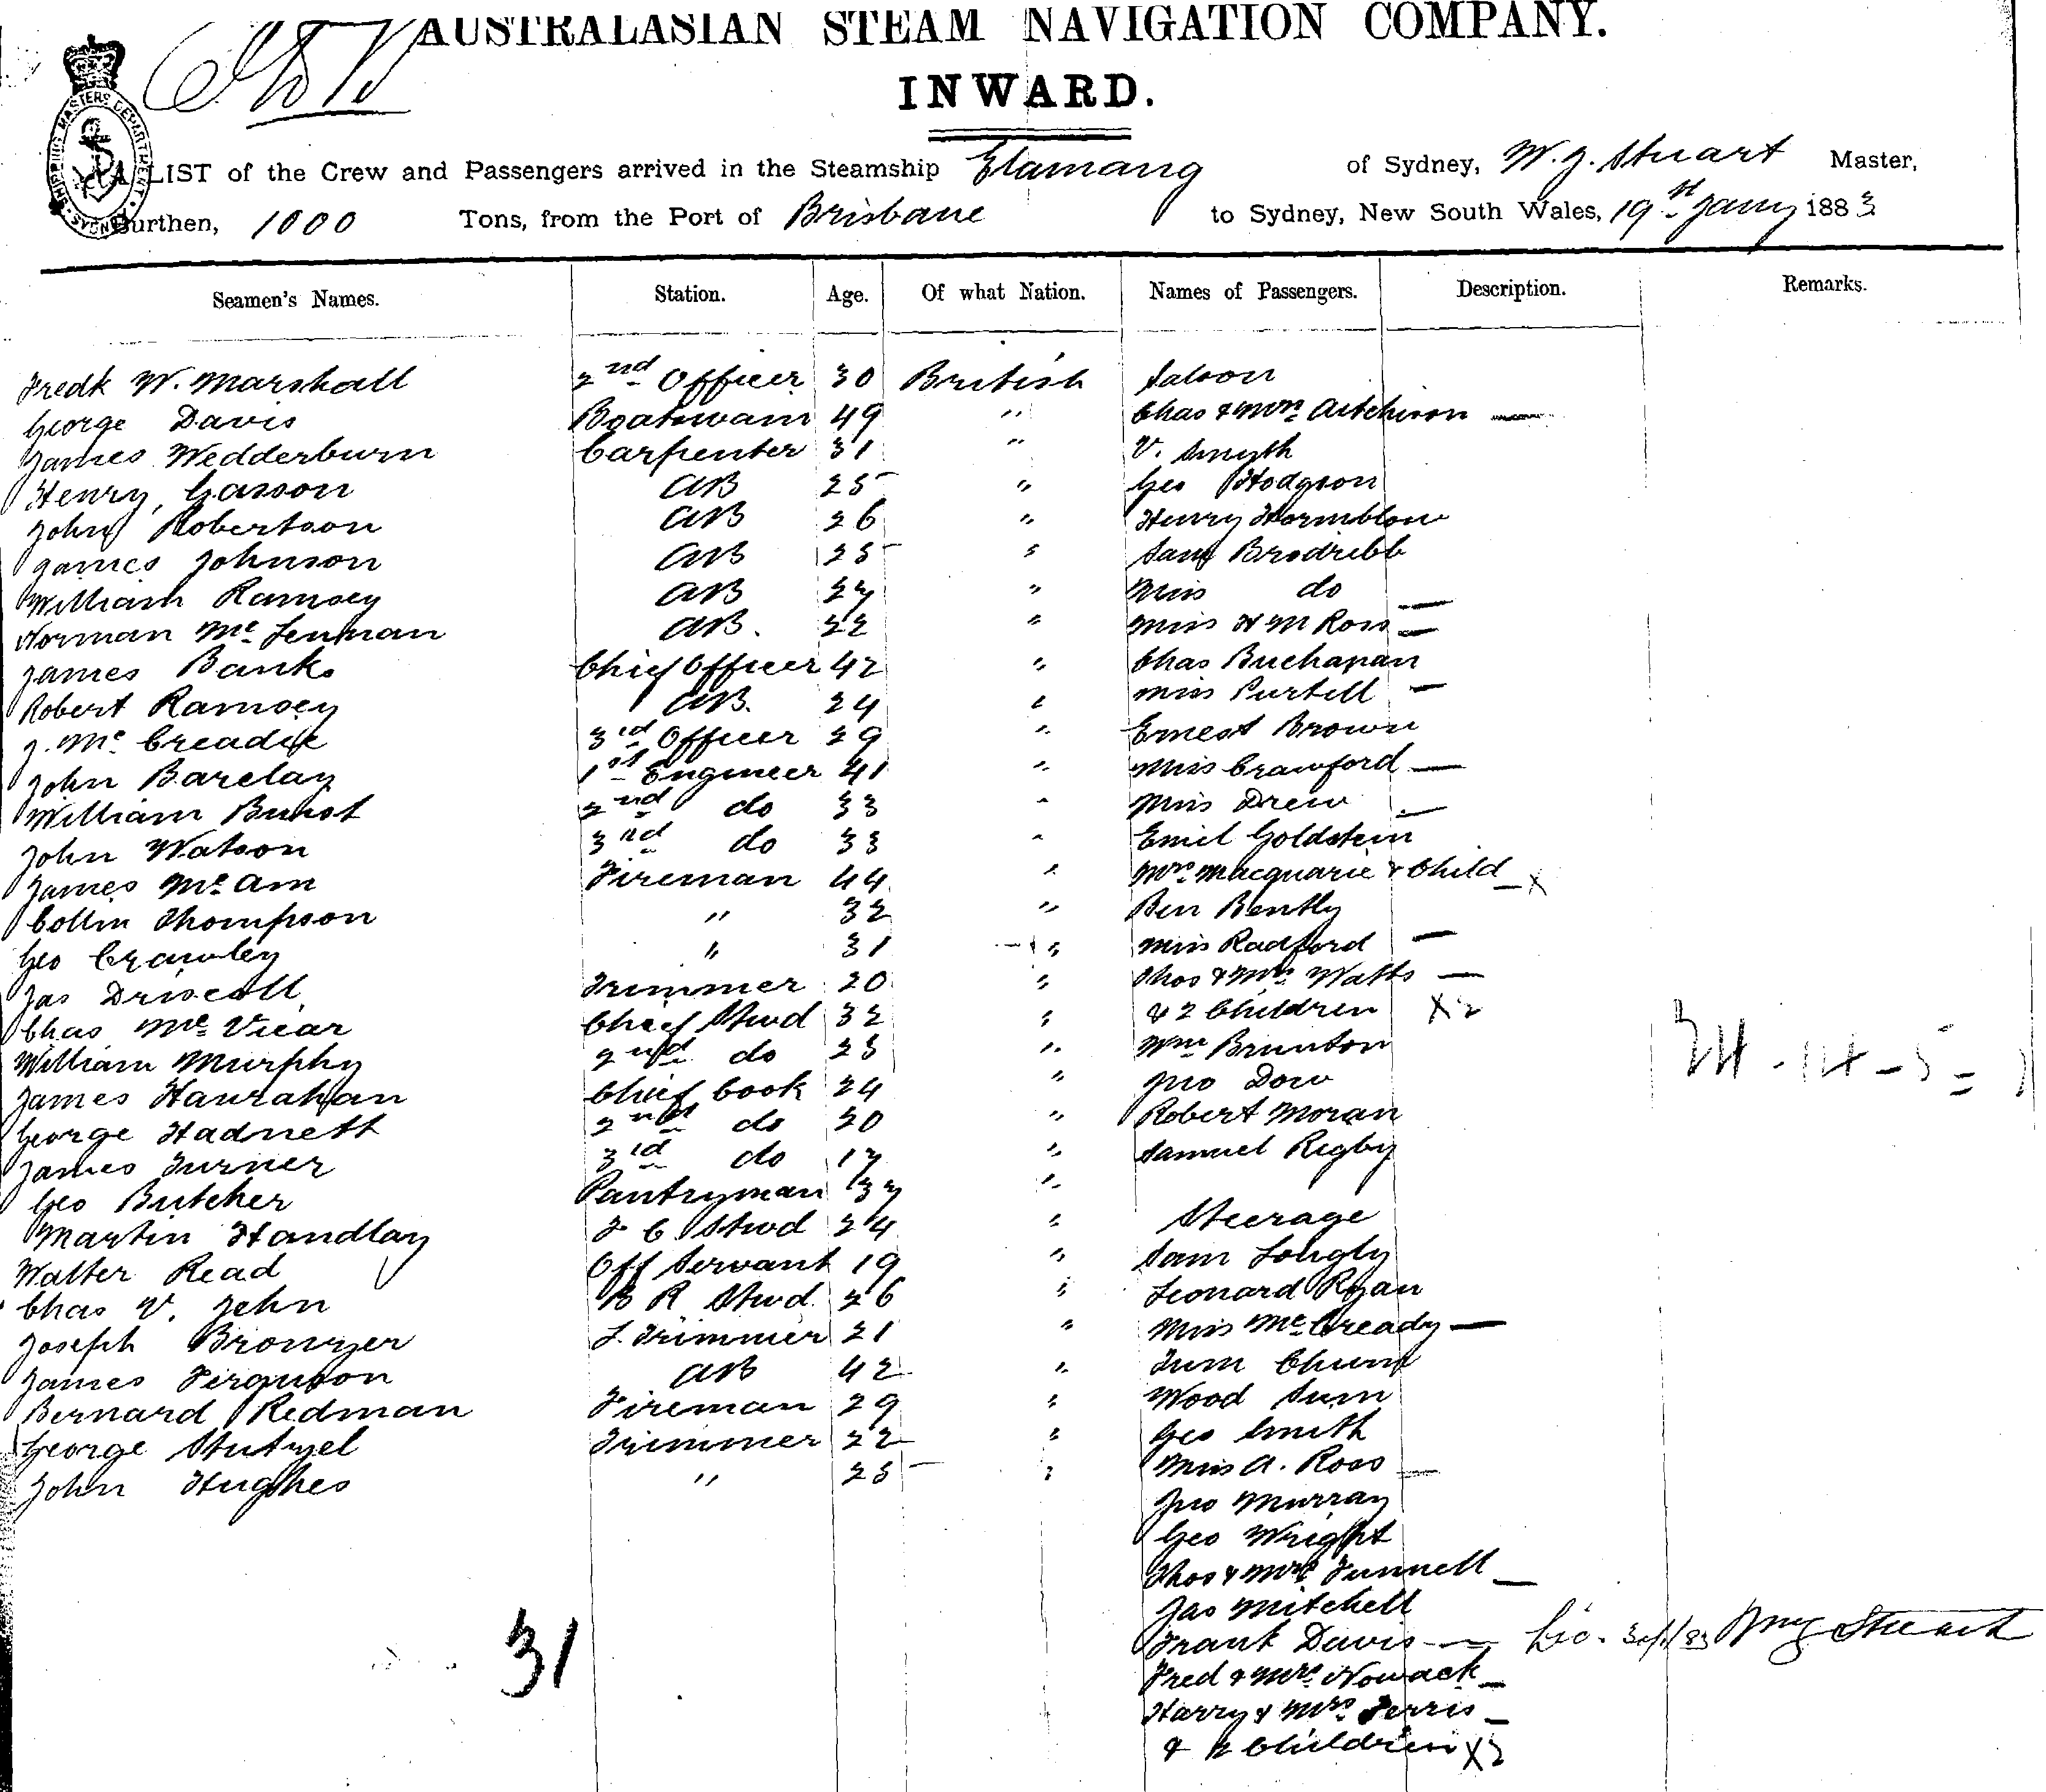 AUSTRALASIAN STEAM NAVIGATION COMPANY.
INWARD.
SHIPPING MASTERS DEPARTMENT SYDNEY
A LIST of the Crew and Passengers arrived in the Steamship Elamang of Sydney, W. J. Stuart Master,
Burthen, 1000 Tons, from the Port of Brisbane to Sydney, New South Wales, 19th Jany 1883
Seamen's Names. Station. Age. Of what Nation. Names of Passengers. Description. Remarks.
Fredk W. Marshall 2nd Officer 30 British Saloon
George Davis Boatswain 49 " Chas & Mrs Aitchison —
James Wedderburn Carpenter 31 " V. Smyth
Henry Gasson AB 25 " Geo Hodgson
John Robertson AB 26 " Henry Hormblow
James Johnson AB 25 " Saml Brodribb
William Ramsey AB 27 " Miss do —
Norman Mc Lennan AB. 22 " Miss H M Ross —
James Banks Chief Officer 42 " Chas Buchanan
Robert Ramsey AB. 24 " Miss Purtell —
J. Mc Creadie 3rd Officer 29 " Ernest Brown
John Barclay 1st Engineer 41 " Miss Crawford —
William Burst 2nd do 33 " Miss Drew —
John Watson 3rd do 33 " Emil Goldstein
James Mc Am Fireman 44 " Mrs Macquarie & Child — X
Collin Thompson " 32 " Ben Bently
Geo Crawley " 31 " Miss Radford —
Jas Driscoll Trimmer 20 " Thos & Mrs Watts —
Chas Mc Vicar Chief Stwd 32 " & 2 Children X 2
William Murphy 2nd do 23 " Wm Brunton
James Hanrahan Chief Cook 24 " Jno Dow
George Hadnett 2nd do 20 " Robert Moran
James Turner 3rd do 17 " Samuel Rigby
Geo Butcher Pantryman 37 "
Martin Handlay F C Stwd 24 " Steerage
Walter Read Off Servant 19 " Sam Longly
Chas V. Jehn B R Stwd. 26 " Leonard Ryan
Joseph Brownyer L. Trimmer 21 " Miss Mc Cready —
James Ferguson AB 42 " Tum Chum
Bernard Redman Fireman 29 " Wood Sum
George Stutzel Trimmer 22 " Geo Smith
John Hughes " 25 " Miss A. Ross —
Jno Murray
Geo Wright
Thos & Mrs Tunnell —
Jas Mitchell
Frank Davis — Stuart
Fred & Mrs Nowack —
Harry & Mrs Ferris —
& 2 Children X 2
31
34 - 14 - 5 =